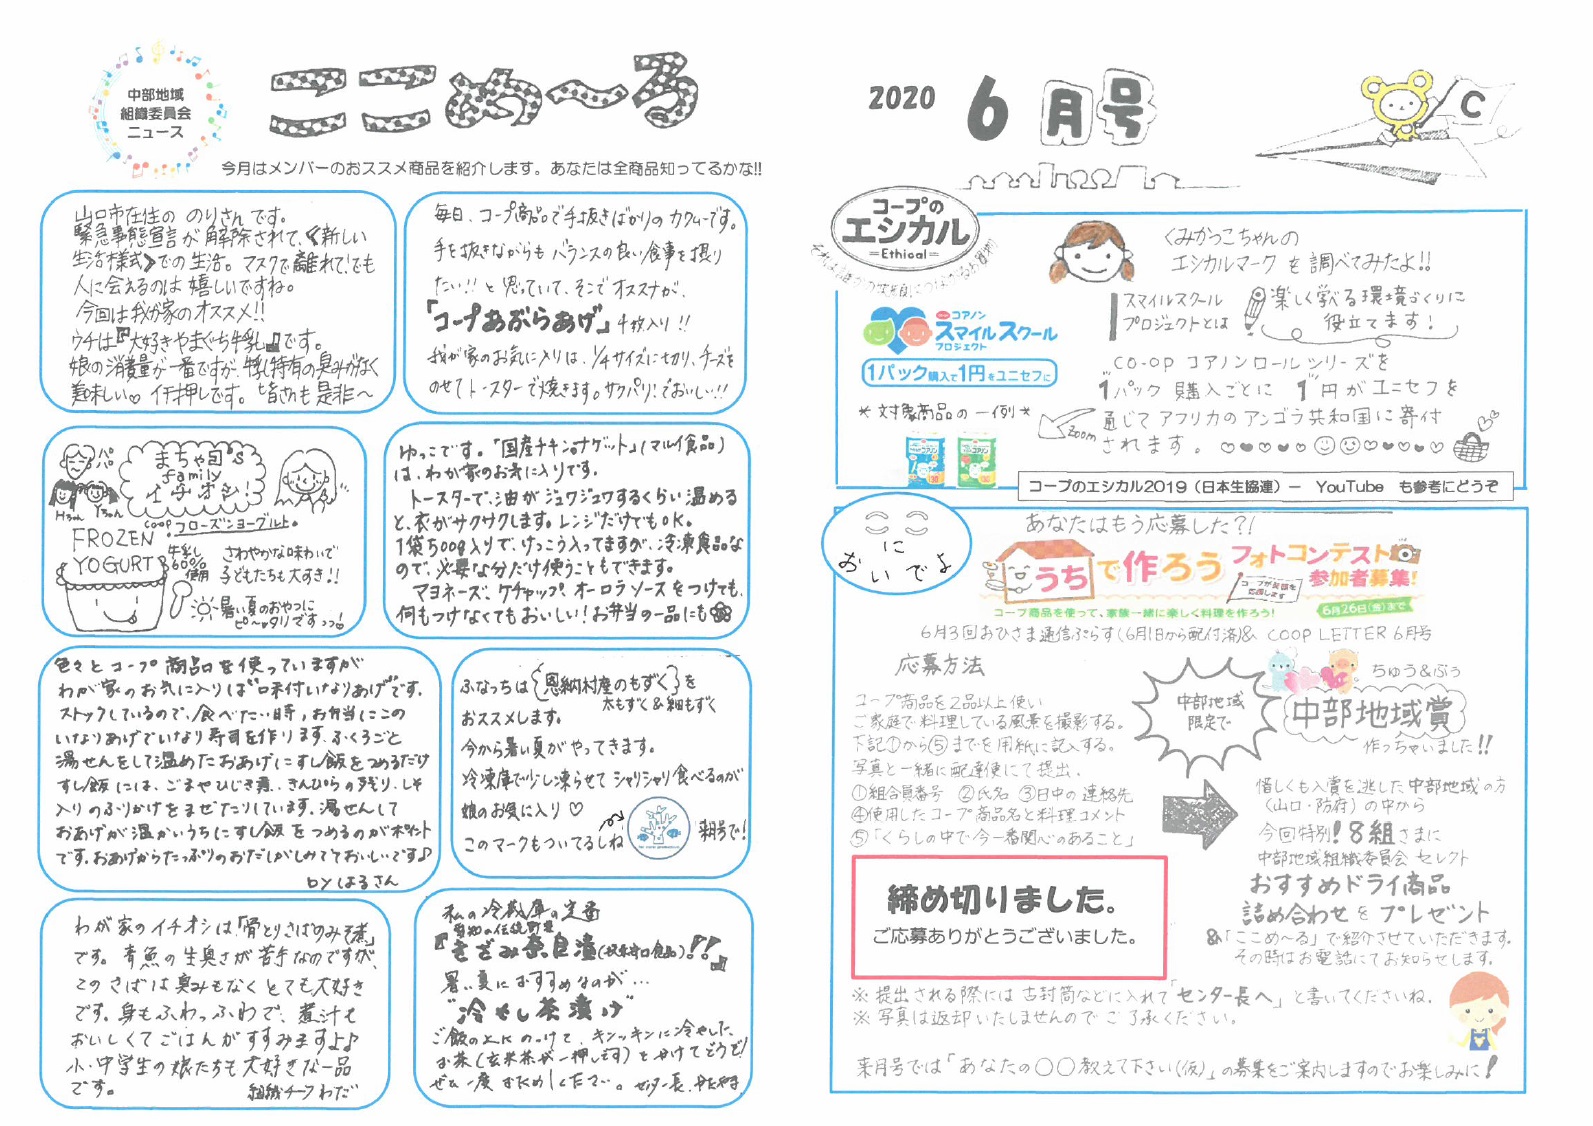 中部地域
組織委員会
ニュース
ここめ～る
今月はメンバーのおススメ商品を紹介します。あなたは全商品知ってるかな!!
2020 6月号
C
山口市在住の のりさんです。
緊急事態宣言が解除されて、《新しい
生活様式》での生活。マスクで離れてでも
人に会えるのは嬉しいですね。
今回は我が家のオススメ!!
ウチは『大好きやまぐち牛乳』です。
娘の消費量が一番ですが、牛乳特有の臭みがなく
美味しい♡ イチ押しです。皆さんも是非～
毎日、コープ商品で手抜きばかりのカクムーです。
手を抜きながらも バランスの良い食事を摂り
たい!! と思っていて、そこでオススメが、
「コープあぶらあげ」4枚入り!!
我が家のお気に入りは、1/4サイズに切り、チーズを
のせてトースターで焼きます。サクパリッでおいしい!!
パパ
まちゃ旬's
family
イチオシ!
Hちゃん Yちゃん
coopフローズンヨーグルト。
FROZEN
YOGURT
牛乳
60%
使用
さわやかな味わいで
子どもたちも大好き!!
暑い夏のおやつに
ピ〜ッタリですっっ!
ゆっこです。「国産チキンナゲット」(マルイ食品)
は、わが家のお気に入りです。
トースターで、油がジュワジュワするくらい温める
と、衣がサクサクします。レンジだけでもOK。
1袋500g入りで、けっこう入ってますが、冷凍食品な
ので、必要な分だけ使うこともできます。
マヨネーズ、ケチャップ、オーロラソースをつけても、
何もつけなくてもおいしい!お弁当の一品にも
色々とコープ商品を使っていますが
わが家のお気に入りは"味付いなりあげ"です。
ストックしているので、食べたい時、お弁当にこの
いなりあげでいなり寿司を作ります。ふくろごと
湯せんをして温めたおあげにすし飯をつめるだけ
すし飯には、ごまやひじき煮、きんぴらの残り、しそ
入りのふりかけをまぜたりしています。湯せんして
おあげが温かいうちにすし飯をつめるのがポイント
です。おあげからたっぷりのおだしがしみでておいしいです♪
by はるさん
ふなっちは{恩納村産のもずく}を
太もずく&細もずく
おススメします。
今から暑い夏がやってきます。
冷凍庫で少し凍らせて シャリシャリ食べるのが
娘のお気に入り♡
このマークもついてるしね
来月号で!
わが家のイチオシは「骨とりさばのみそ煮」
です。青魚の生臭さが苦手なのですが、
このさばは臭みもなくとても大好き
です。身もふわっふわで、煮汁も
おいしくてごはんがすすみますよ♪
小・中学生の娘たちも大好きな一品
です。
組織チーフ わだ
私の冷蔵庫の定番
『きざみ奈良漬!!』
暑い夏におすすめなのが…
"冷やし茶漬け"
ご飯の上にのっけて、キンッキンに冷やした、
お茶(玄米茶が一押しです)をかけてどうぞ!
ぜひ一度おためしください。 センター長、
コープの
エシカル
=Ethical=
くみかつこちゃんの
エシカルマークを調べてみたよ!!
コアノン
スマイルスクール
プロジェクト
1パック購入で1円をユニセフに
スマイルスクール
プロジェクトとは
楽しく学べる環境づくりに
役立てます!
CO-OP コアノンロールシリーズを
1パック購入ごとに 1円がユニセフを
通じてアフリカのアンゴラ共和国に寄付
されます。
*対象商品の一例*
Zoom
コープのエシカル2019(日本生協連)－ YouTube も参考にどうぞ
に
おいでよ
あなたはもう応募した?!
うちで作ろう フォトコンテスト
参加者募集!
コープが笑顔を
応援します
コープ商品を使って、家族一緒に楽しく料理を作ろう!
6月26日(金)まで
6月3回おひさま通信ぷらす(6月1日から配付済)& COOP LETTER 6月号
応募方法
コープ商品を2品以上使い
ご家庭で料理している風景を撮影する。
下記①から⑤までを用紙に記入する。
写真と一緒に配達便にて提出.
①組合員番号 ②氏名 ③日中の連絡先
④使用したコープ商品名と料理コメント
⑤「くらしの中で今一番関心のあること」
締め切りました。
ご応募ありがとうございました。
中部地域
限定で
ちゅう&ぶぅ
中部地域賞
作っちゃいました!!
惜しくも入賞を逃した中部地域の方
(山口・防府)の中から
今回特別!8組さまに
中部地域組織委員会 セレクト
おすすめドライ商品
詰め合わせをプレゼント
&「ここめ～る」で紹介させていただきます。
その時はお電話にてお知らせします。
※提出される際には 古封筒などに入れて「センター長へ」と書いてくださいね.
※写真は返却いたしませんのでご了承ください。
来月号では「あなたの〇〇教えて下さい(仮)」の募集をご案内しますのでお楽しみに!